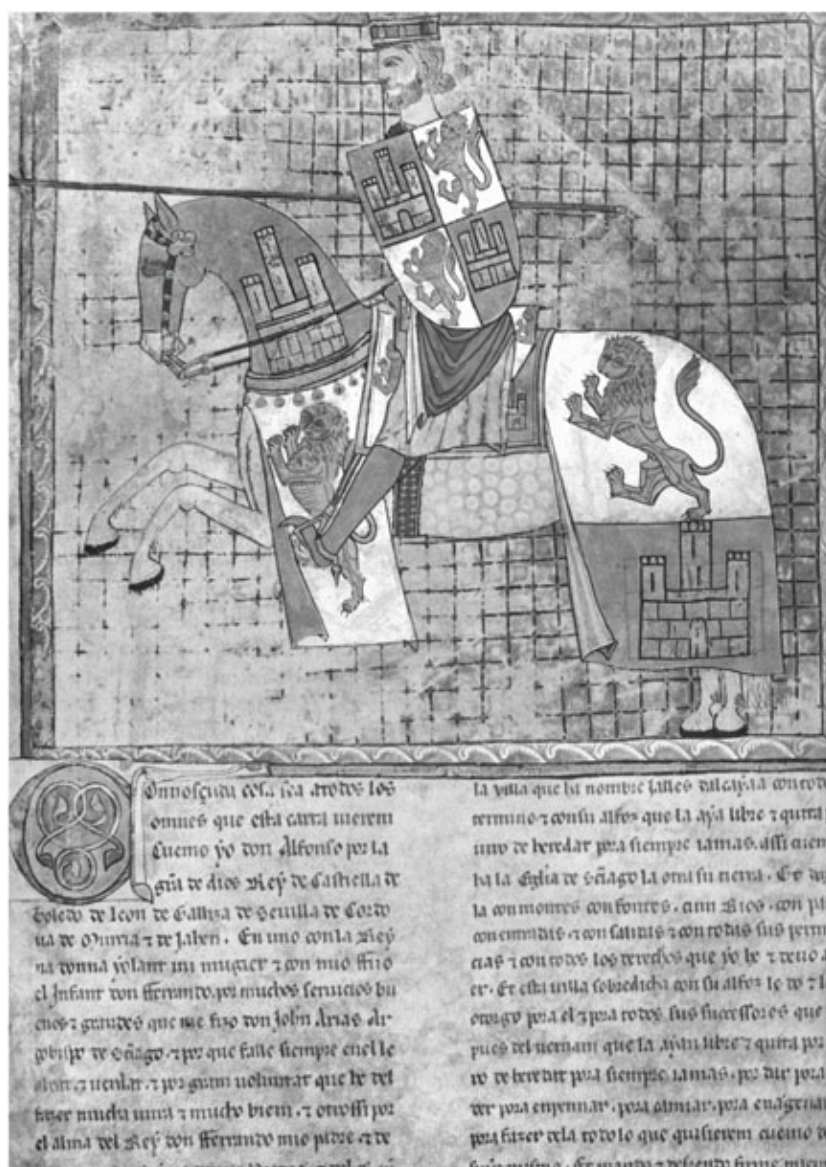 Onnosçuda cosa sea atodos los
omnes que esta carta uieren
Cuemo yo don Alfonso por la
gra de dios Rey de Castiella de
Toledo de Leon de Galliza de Seuilla de Cordo
ua de Murcia ⁊ de Jahen. En uno con la Rey
na donna yolant mi mugier ⁊ con mio fijo
el Infant don fferrando, por muchos seruicios bu
enos ⁊ grandes que me fizo don Johan Arias Ar
çobispo de Sãago, ⁊ por que falle siempre enel le
⁊ por grant uoluntat que he del
fazer mucha ⁊ mucho bien, ⁊ otrossi por
el alma del Rey don fferrando mio padre ⁊ de
la villa que ha nombre con todo
termino ⁊ consu alfoz que la aya libre ⁊ quita
uro de heredat pora siempre iamas, assi cuem
ha la Eglia de Sãago la otra su tierra. Et
la con montes con fontes, con Rios, con
con entradas, ⁊ con salidas ⁊ con todas sus
cias ⁊ con todos los derechos que yo he ⁊ deuo a
er. Et esta uilla sobredicha con su alfoz le do ⁊
otorgo pora el ⁊ pora todos sus successores que
pues del uernan que la ayan libre ⁊ quita por
ro de heredat pora siempre iamas, por dar pora
der pora enpennar, pora camiar, pora enagenar
pora fazer della todo lo que quisieren cuemo de
Et mando ⁊ defiendo firme